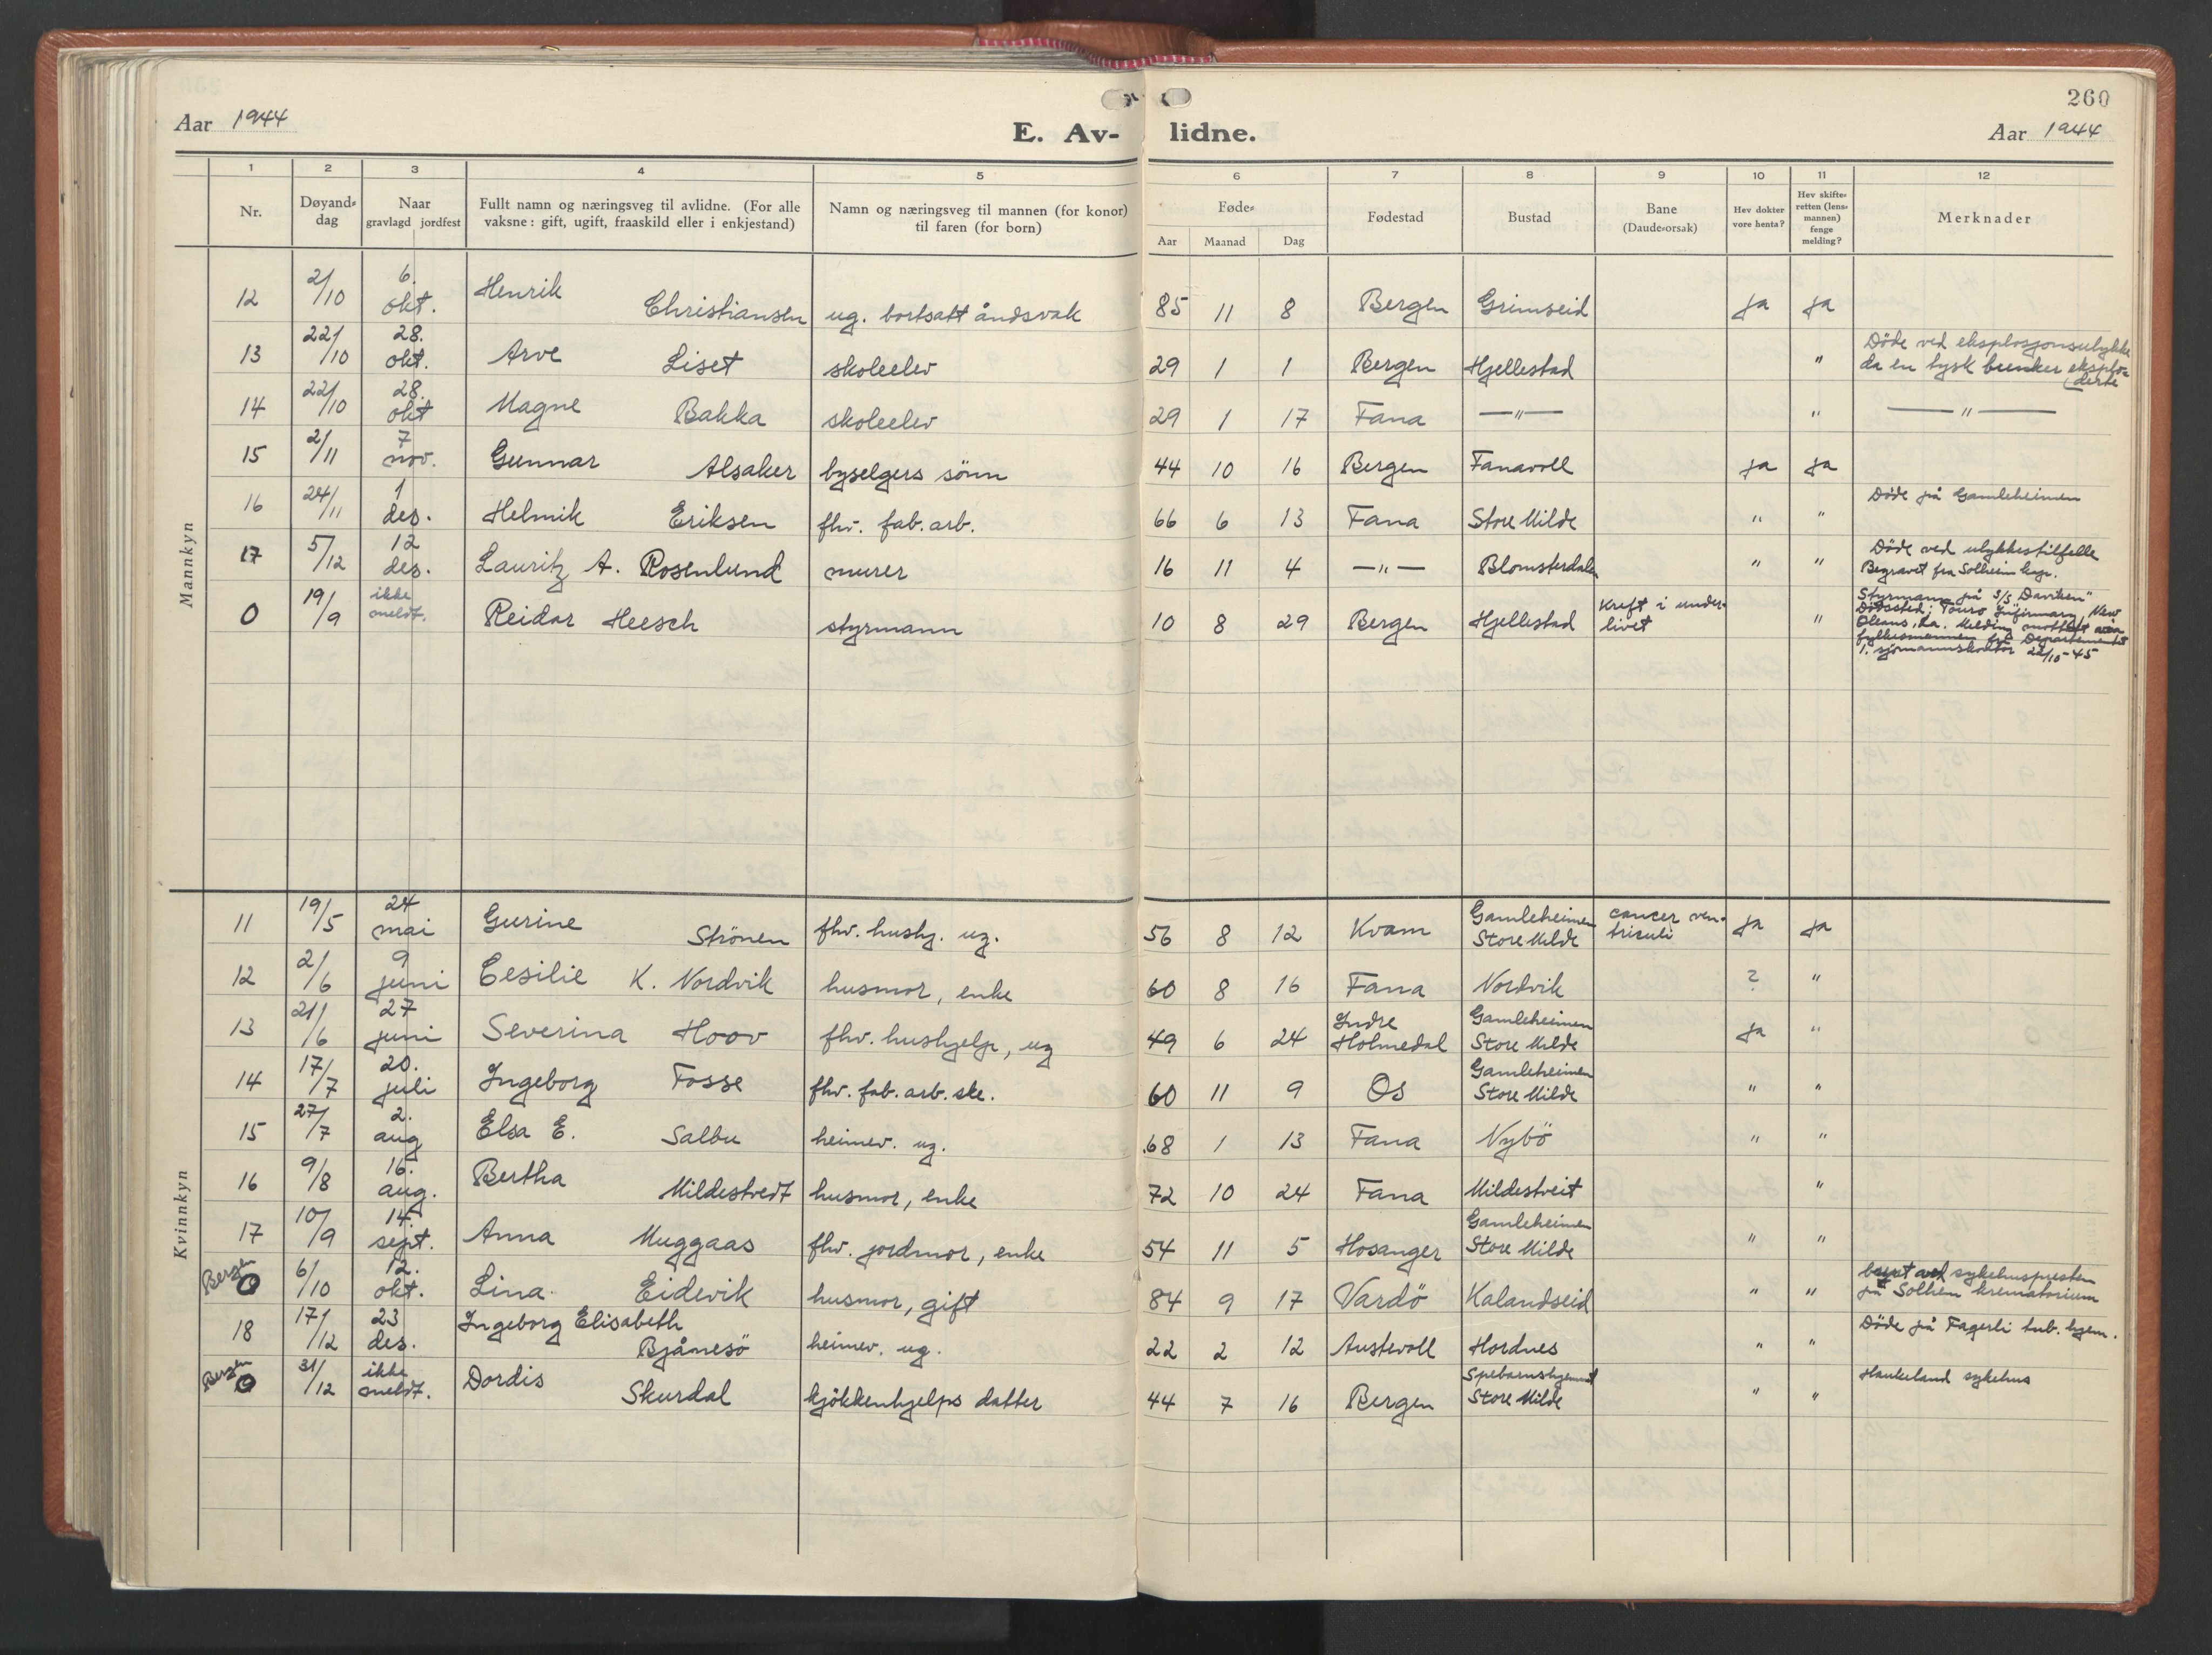 260
Aar 1944 E. Av- lidne. Aar 1944
1 2 3 4 5 6 7 8 9 10 11 12
Nr. Døyand-dag Naar gravlagd jordfest Fullt namn og næringsveg til avlidne. (For alle vaksne: gift, ugift, fraaskild eller i enkjestand) Namn og næringsveg til mannen (for konor) til faren (for born) Føde- Aar Maanad Dag Fødestad Bustad Bane (Daude-orsak) Hev dokter vore henta? Hev skifteretten (lensmannen) fenge melding? Merknader
Mannkyn
12 2/10 6. okt. Henrik Christiansen ug. bortsatt åndsvak 85 11 8 Bergen Grimseid ja ja
13 22/10 28. okt. Arve Liset skoleelev 29 1 1 Bergen Hjellestad " Döde ved eksplosjonsulykke da en tysk bunker eksploderte
14 22/10 28. okt Magne Bakka skoleelev 29 1 17 Fana —"— " —"—
15 2/11 7 nov. Gunnar Alsaker byselgers sönn 44 10 16 Bergen Fanavoll ja ja
16 24/11 1 des. Helmik Eriksen fhv. fab. arb. 66 6 13 Fana Store Milde " " Döde på Gamleheimen
17 5/12 12 des. Lauritz A. Rosenlund murer 16 11 4 —"— Blomsterdalen " " Döde ved ulykkestilfelle Begravet fra Solheim kap.
0 19/9 ikke meldt. Reidar Heesch styrmann 10 8 29 Bergen Hjellestad Kreft i underlivet " Styrmann på S/S "Daviken" Dödssted: Touro Infirmary, New Oleans, La. Melding mottatt fylkesmannen Departementet 1. sjömannskontor 22/10-45
Kvinnkyn
11 19/5 24 mai Gurine Strönen fhv. hushj. ug. 56 8 12 Kvam Gamleheimen Store Milde cancer ventriculi ja ja
12 2/6 9 juni Cesilie K. Nordvik husmor, enke 60 8 16 Fana Nordvik ? "
13 21/6 27 juni Severina Hoov fhv. hushjelp, ug 49 6 24 Indre Holmedal Gamleheimen Store Milde ja "
14 17/7 20. juli Ingeborg Fosse fhv. fab. arb. ske. 60 11 9 Os Gamleheimen Store Milde " "
15 27/7 2. aug Elsa E. Salbu heimev. ug. 68 1 13 Fana Nybö " "
16 9/8 16. aug. Bertha Mildestvedt husmor, enke 72 10 24 Fana Mildestveit "
17 10/9 14. sept. Anna Muggaas fhv. jordmor, enke 54 11 5 Hosanger Gamleheimen Store Milde " "
Bergen 0 6/10 12. okt. Lina Eidevik husmor, gift 84 9 17 Vardö Kalandseid " " sykehuspresten på Solheim krematorium
18 17/12 23 des. Ingeborg Elisabeth Bjånesö heimev. ug. 22 2 12 Austevoll Hordnes " " Döde på Fagerli tub. hjem.
Bergen 0 31/12 ikke meldt. Dordis Skurdal kjökkenhjelps datter 44 7 16 Bergen Spebarnshjemmet Store Milde " " Haukeland sykehus